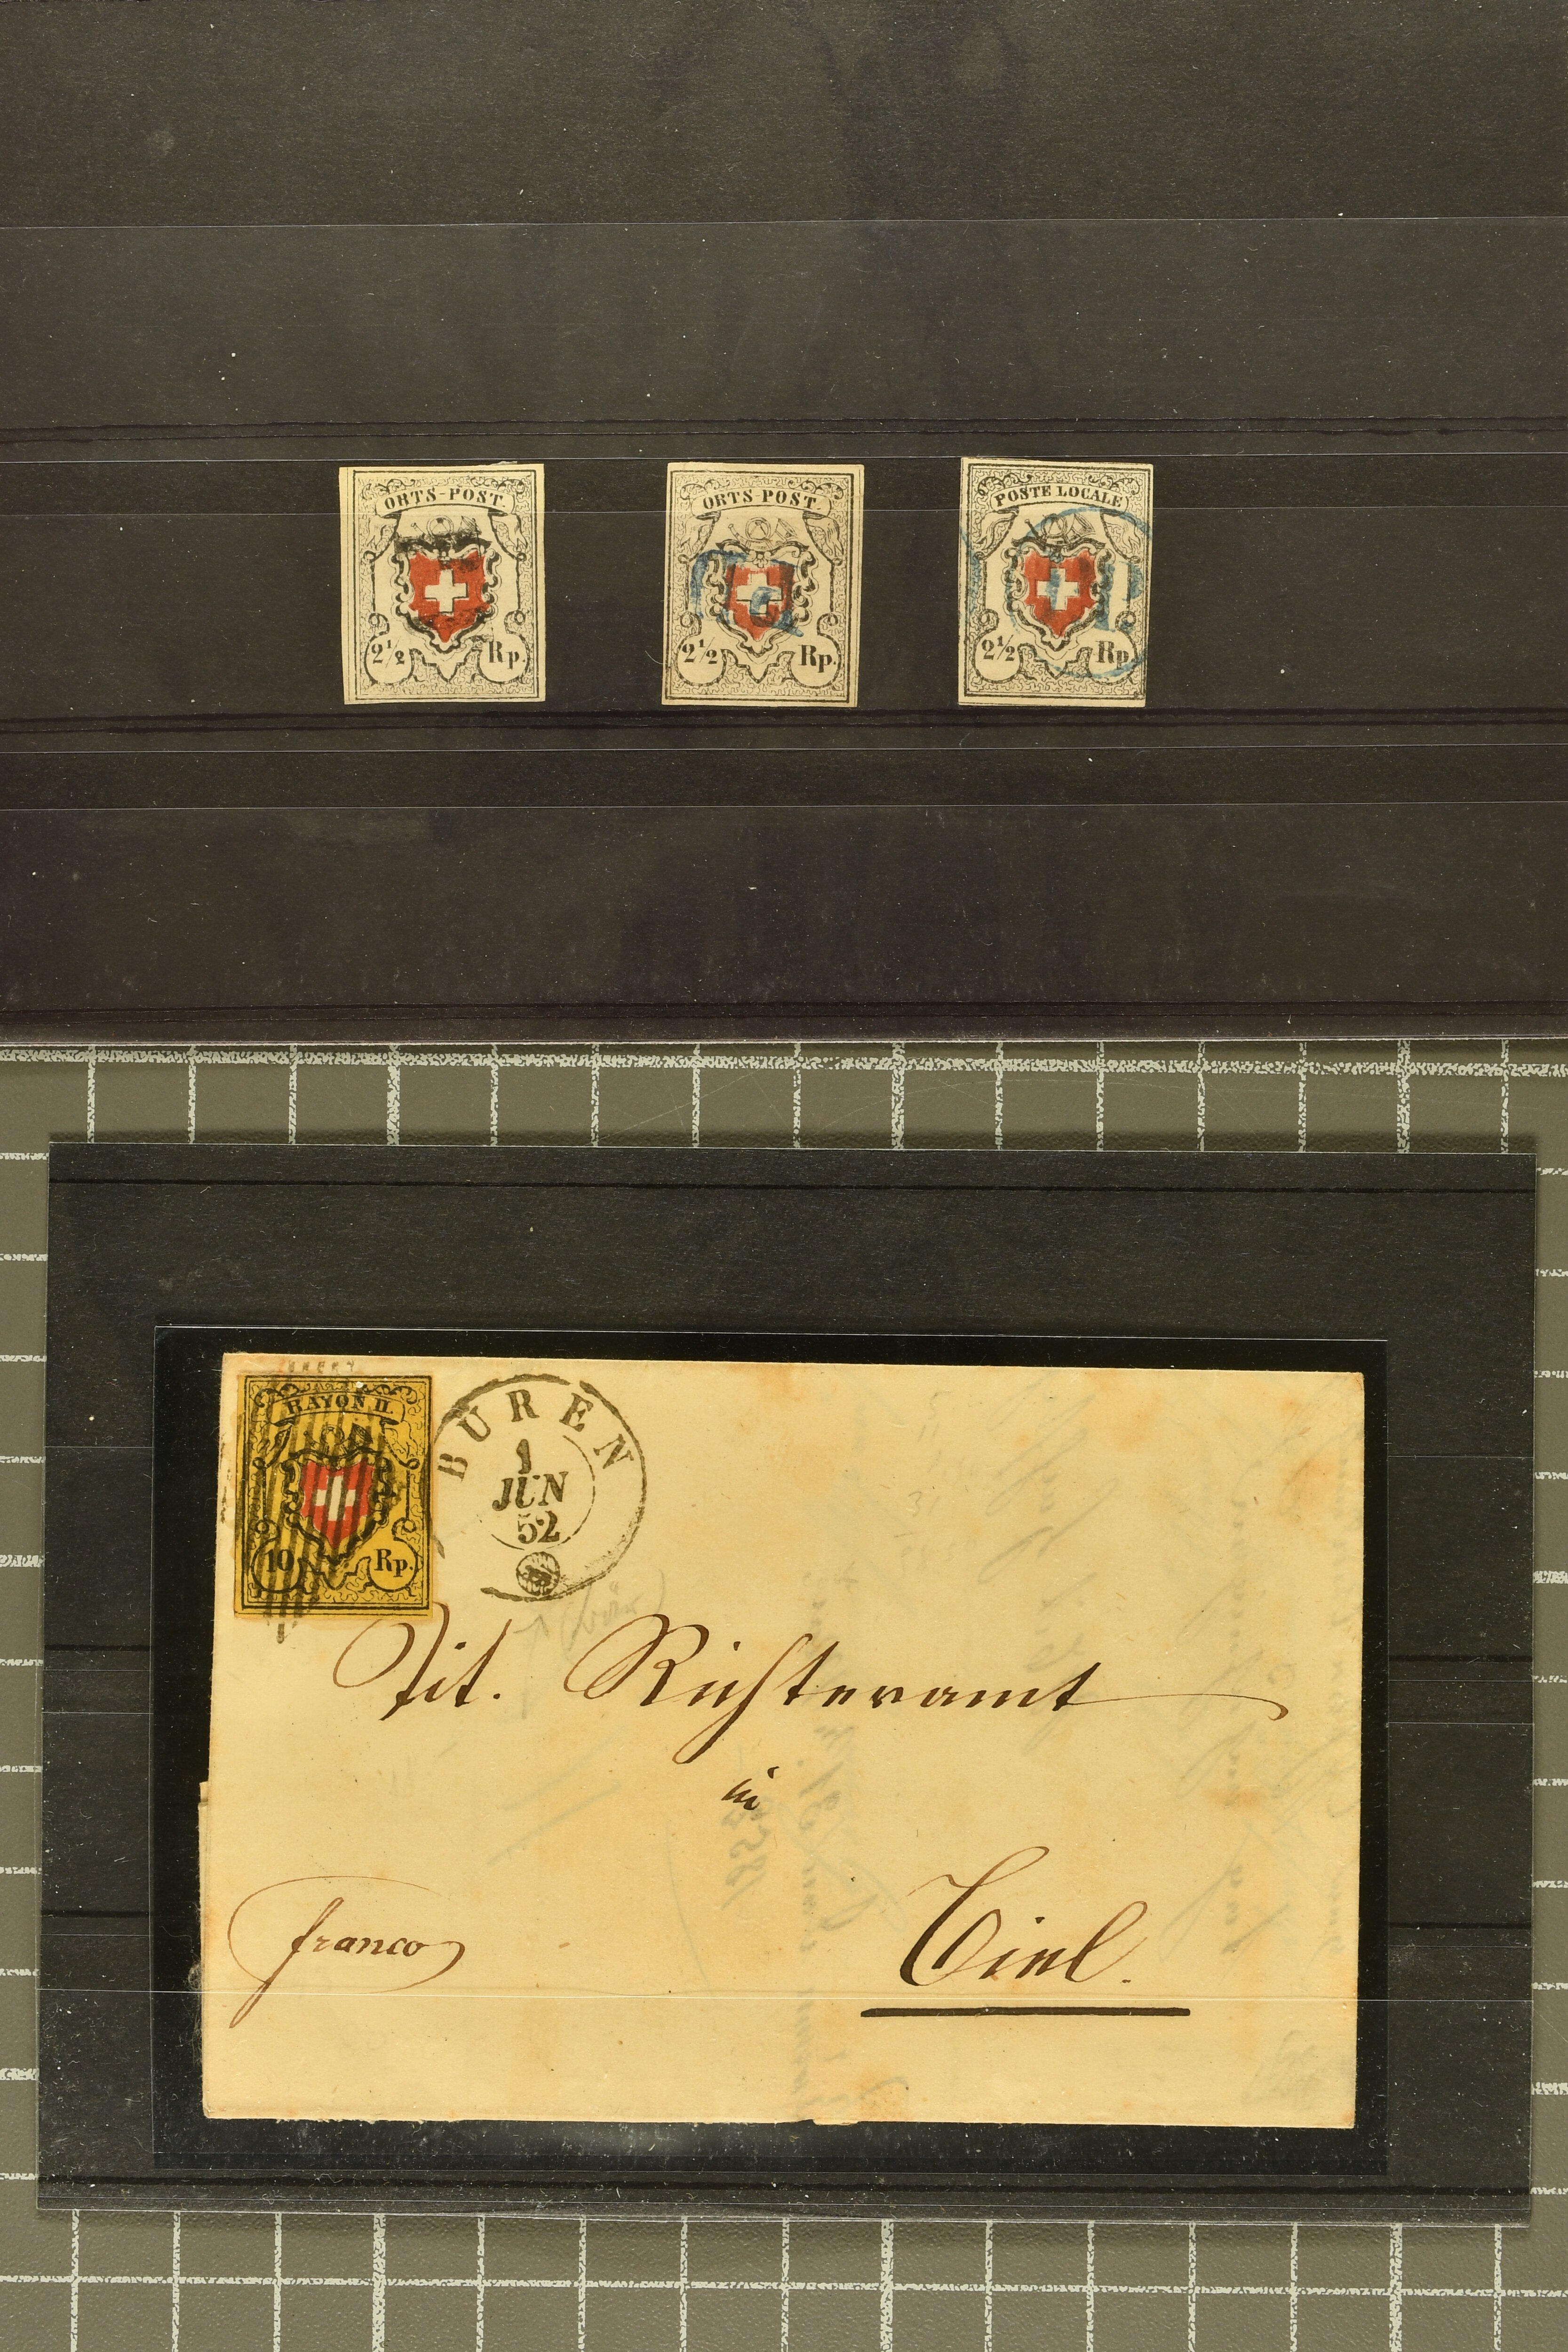 ORTS-POST.
2½ Rp.
ORTS-POST.
2½ Rp.
POSTE LOCALE
2½ Rp.
RAYON II.
10 Rp.
BUREN
1
JUN
52
Tit. Richteramt
in
Biel.
franco